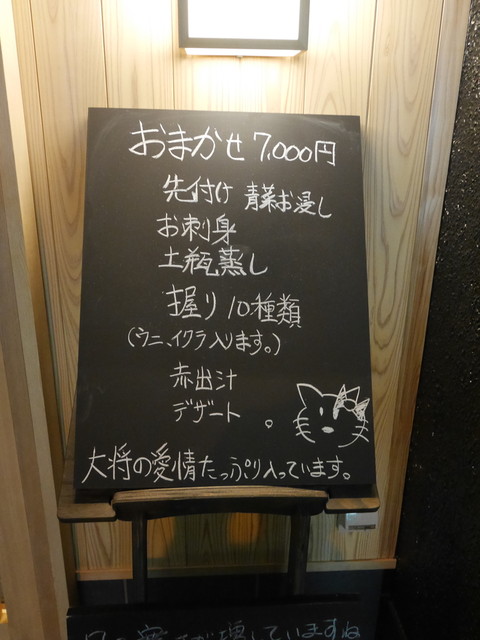 おまかせ 7,000円
先付け 青菜お浸し
お刺身
土瓶蒸し
握り 10種類
(ウニ、イクラ入ります。)
赤出汁
デザート。
大将の愛情たっぷり入っています。